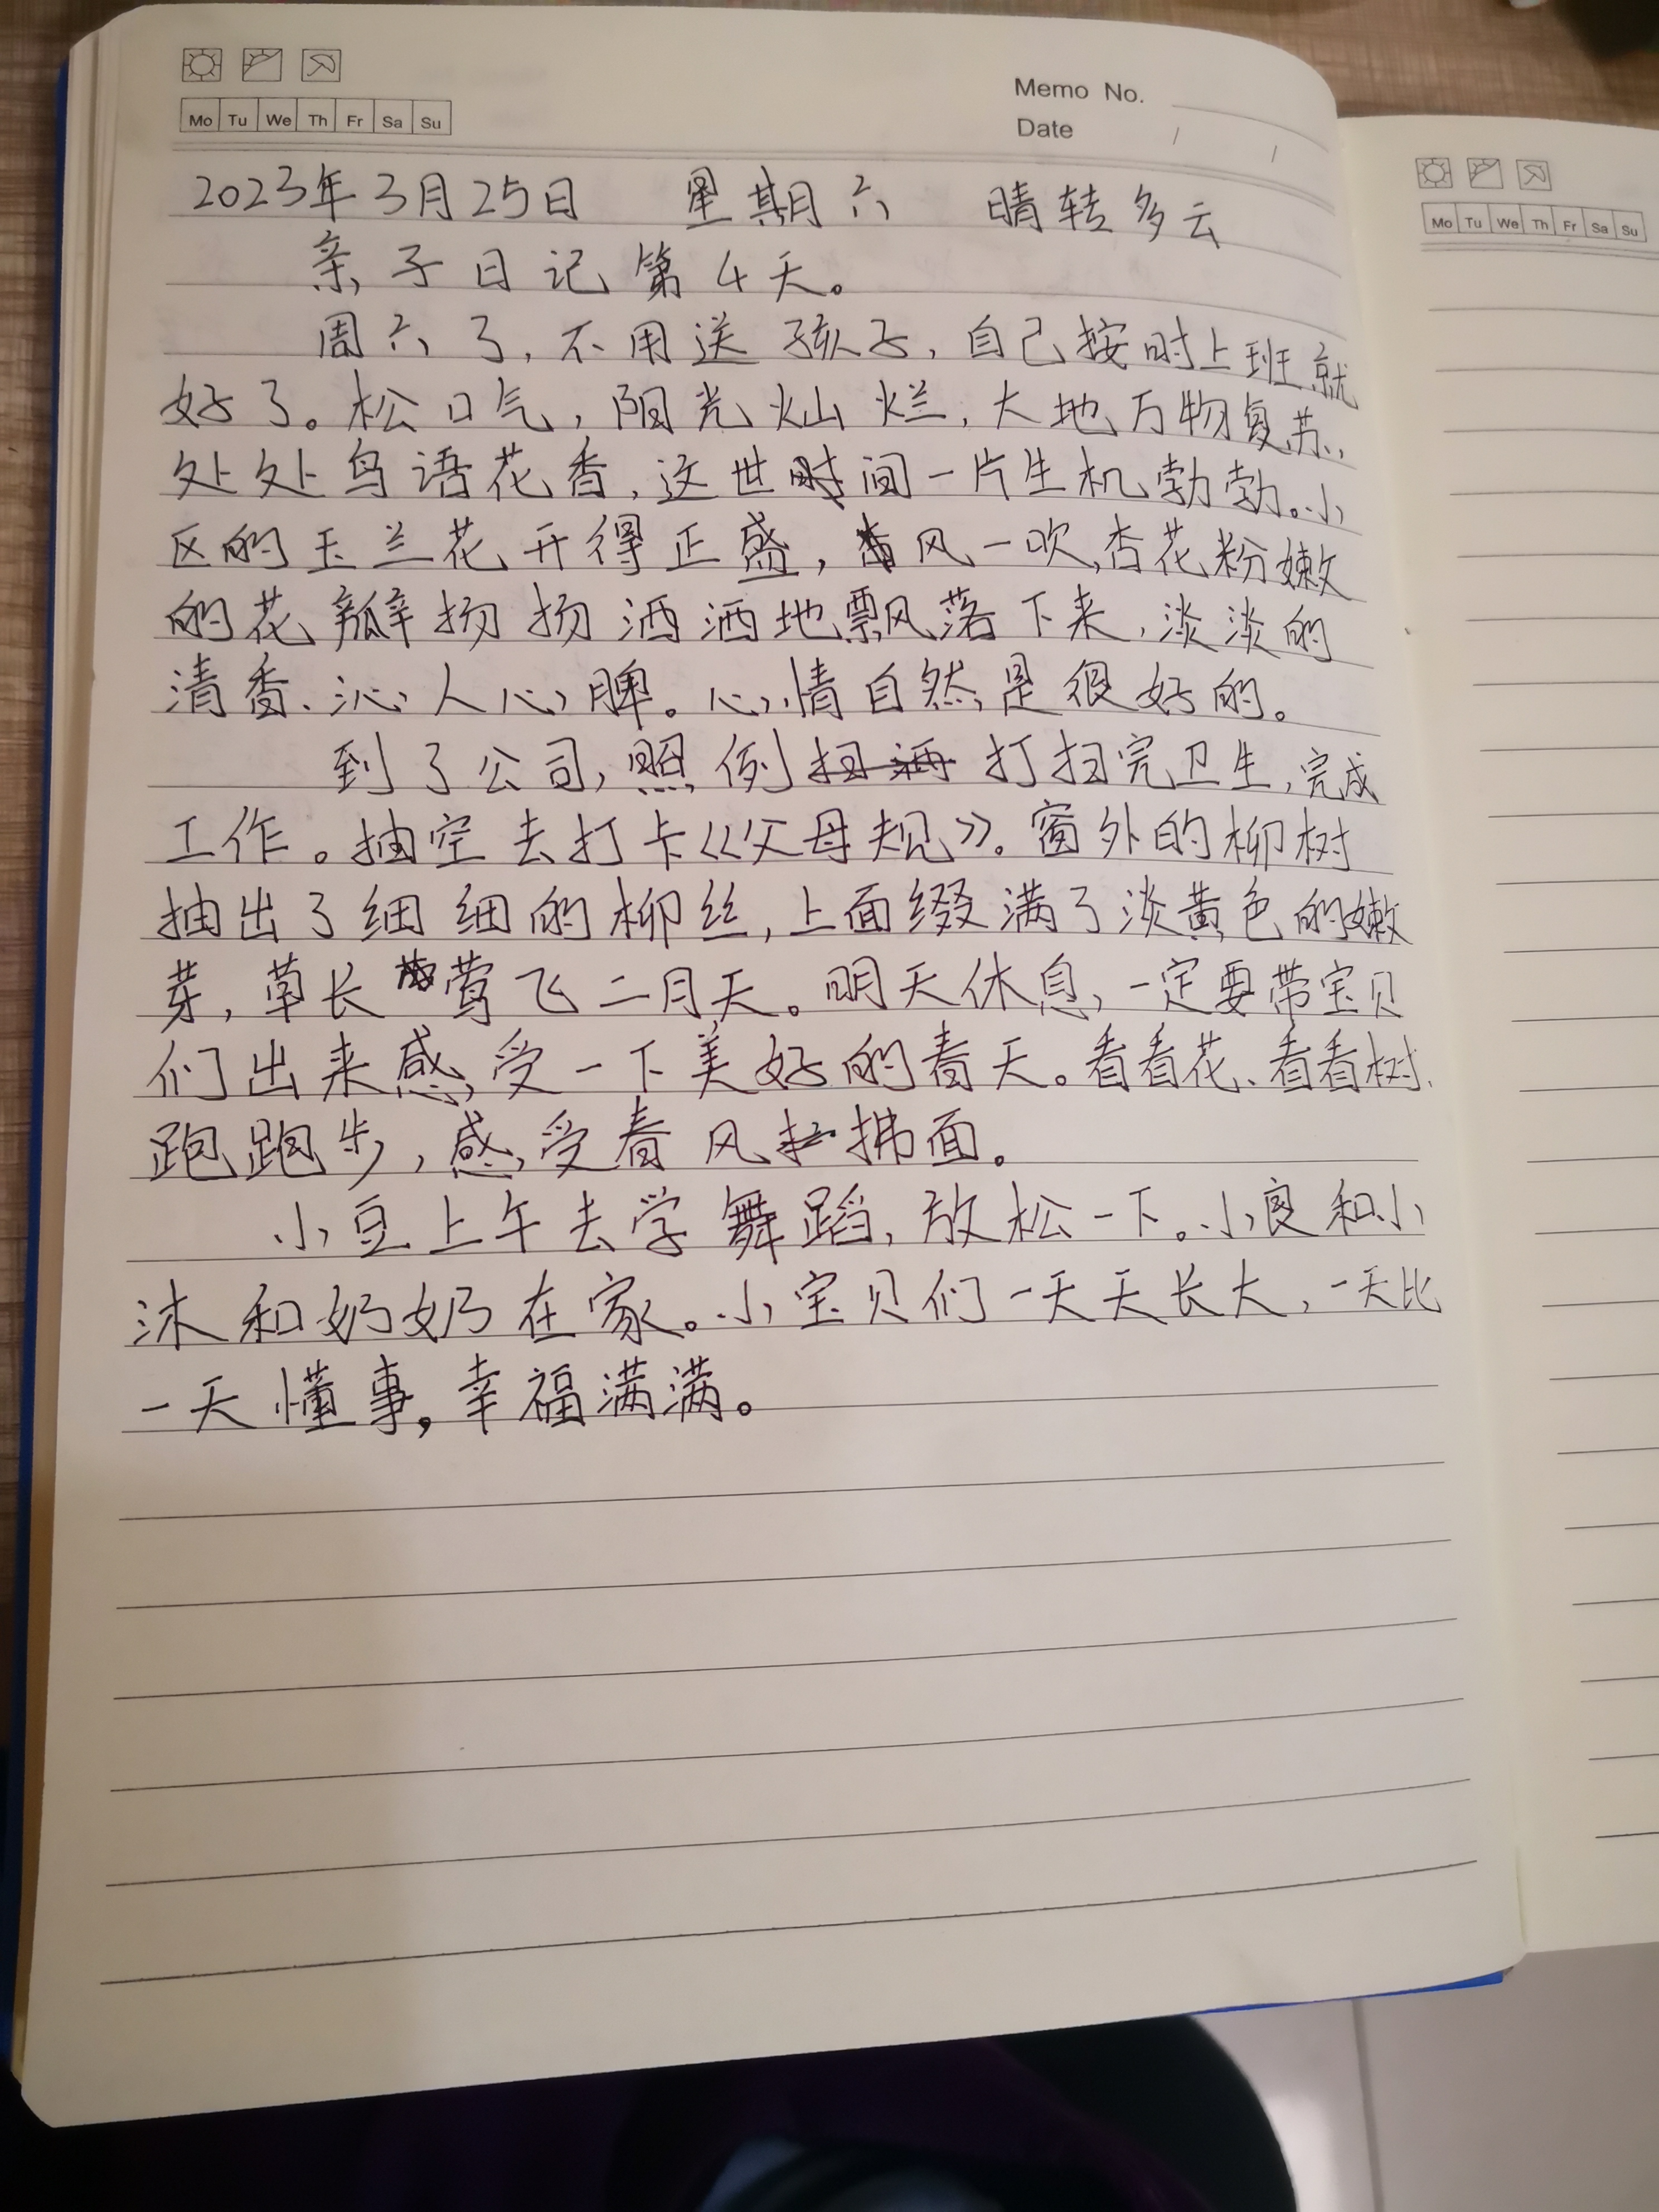 Memo No.
Mo Tu We Th Fr Sa Su
Date / /
2023年3月25日 星期六 晴转多云
亲子日记第4天。
周六了，不用送孩子，自己按时上班就
好了。松口气，阳光灿烂，大地万物复苏、
处处鸟语花香，这世时间一片生机勃勃。小
区的玉兰花开得正盛，风一吹，杏花粉嫩
的花瓣扬扬洒洒地飘落下来，淡淡的
清香、沁人心脾。心情自然是很好的。
到了公司，照例打扫完卫生，完成
工作。抽空去打卡《父母规》。窗外的柳树
抽出了细细的柳丝，上面缀满了淡黄色的嫩
芽，草长莺飞二月天。明天休息，一定要带宝贝
们出来感受一下美好的春天。看看花、看看树、
跑跑步，感受春风拂面。
小豆上午去学舞蹈，放松一下。小良和小
沐和奶奶在家。小宝贝们一天天长大，一天比
一天懂事。幸福满满。
Mo Tu We Th Fr Sa Su